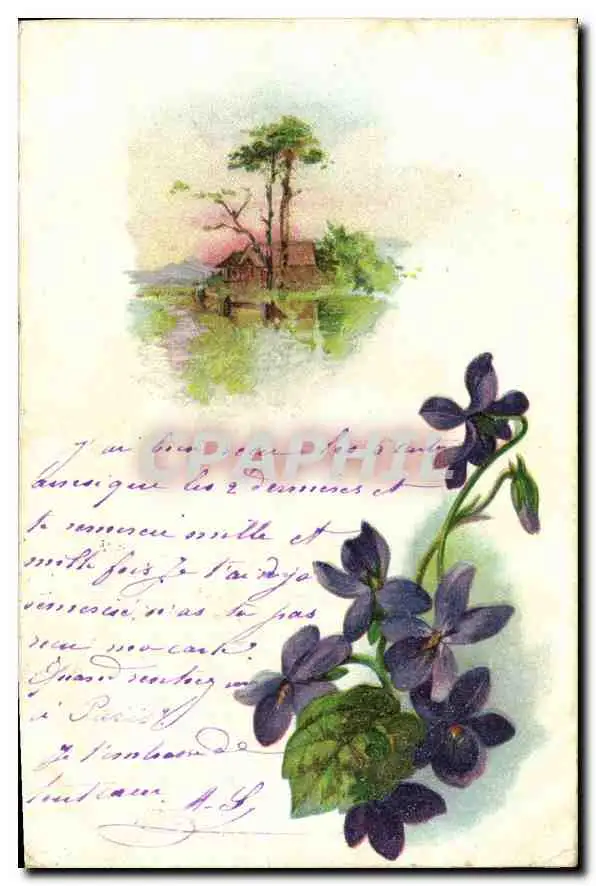 J'ai bien reçu tes 3 cartes
ainsi que les 2 dernieres et
te remercie mille et
mille fois Je t'ai deja
remercié, n'as tu pas
recu ma carte
Quand rentrez
à Paris?
Je t'embrasse de
tout cœur. A. S.
CPAPHIL